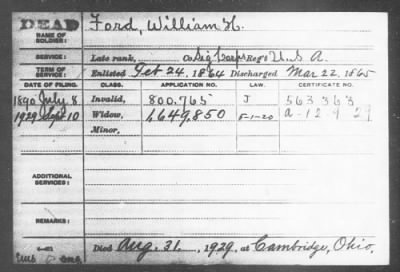 DEAD Ford, William H.
NAME OF SOLDIER:
SERVICE: Late rank, Co. Sig. Corps Reg't U.S.A.
TERM OF SERVICE: Enlisted Feb 24, 1864 Discharged Mar 22, 1865
DATE OF FILING. CLASS. APPLICATION NO. LAW. CERTIFICATE NO.
1890 July 8 Invalid, 800.765 J 563363
1929 Sept 10 Widow, 1,649,850 5-1-20 A-12 9 29
Minor,
ADDITIONAL SERVICES:
REMARKS:
Died Aug. 31, 1929, at Cambridge, Ohio.